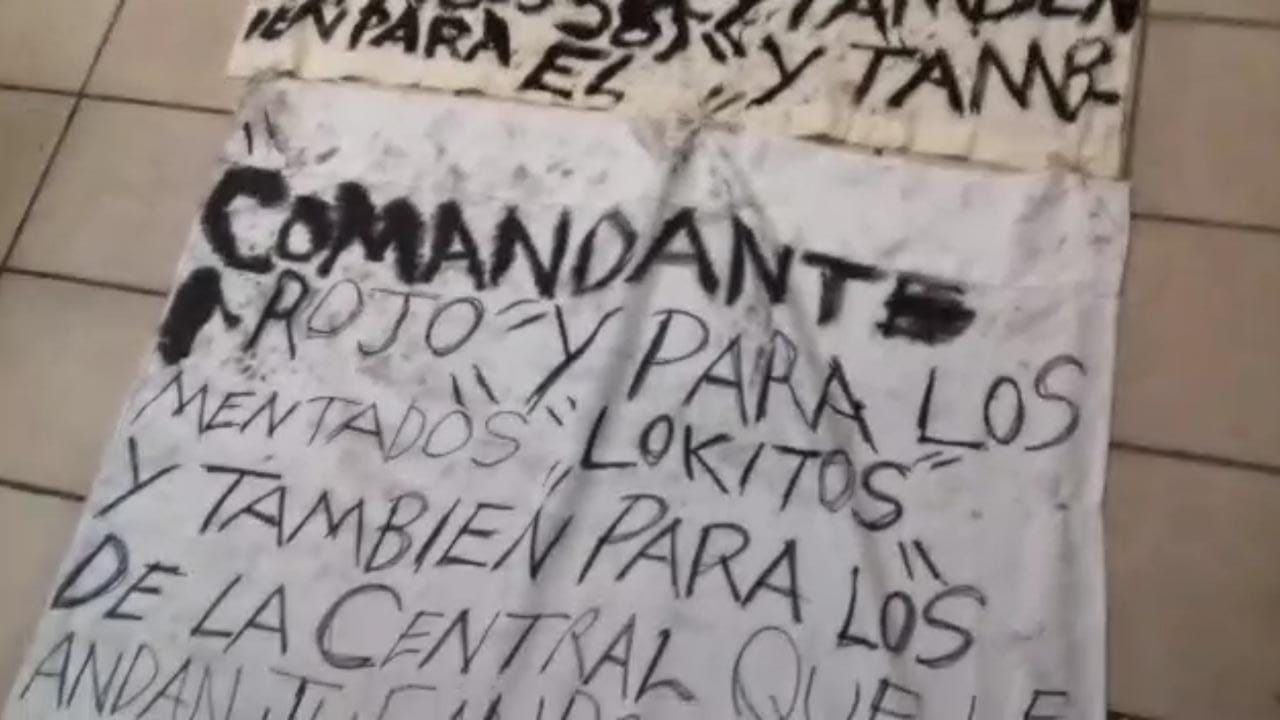 TAMBIEN
IEN PARA EL " Y TAMB-
" COMANDANTE
ROJO" Y PARA LOS
MENTADOS "LOKITOS"
Y TAMBIEN PARA LOS "
DE LA CENTRAL QUE LE
ANDAN